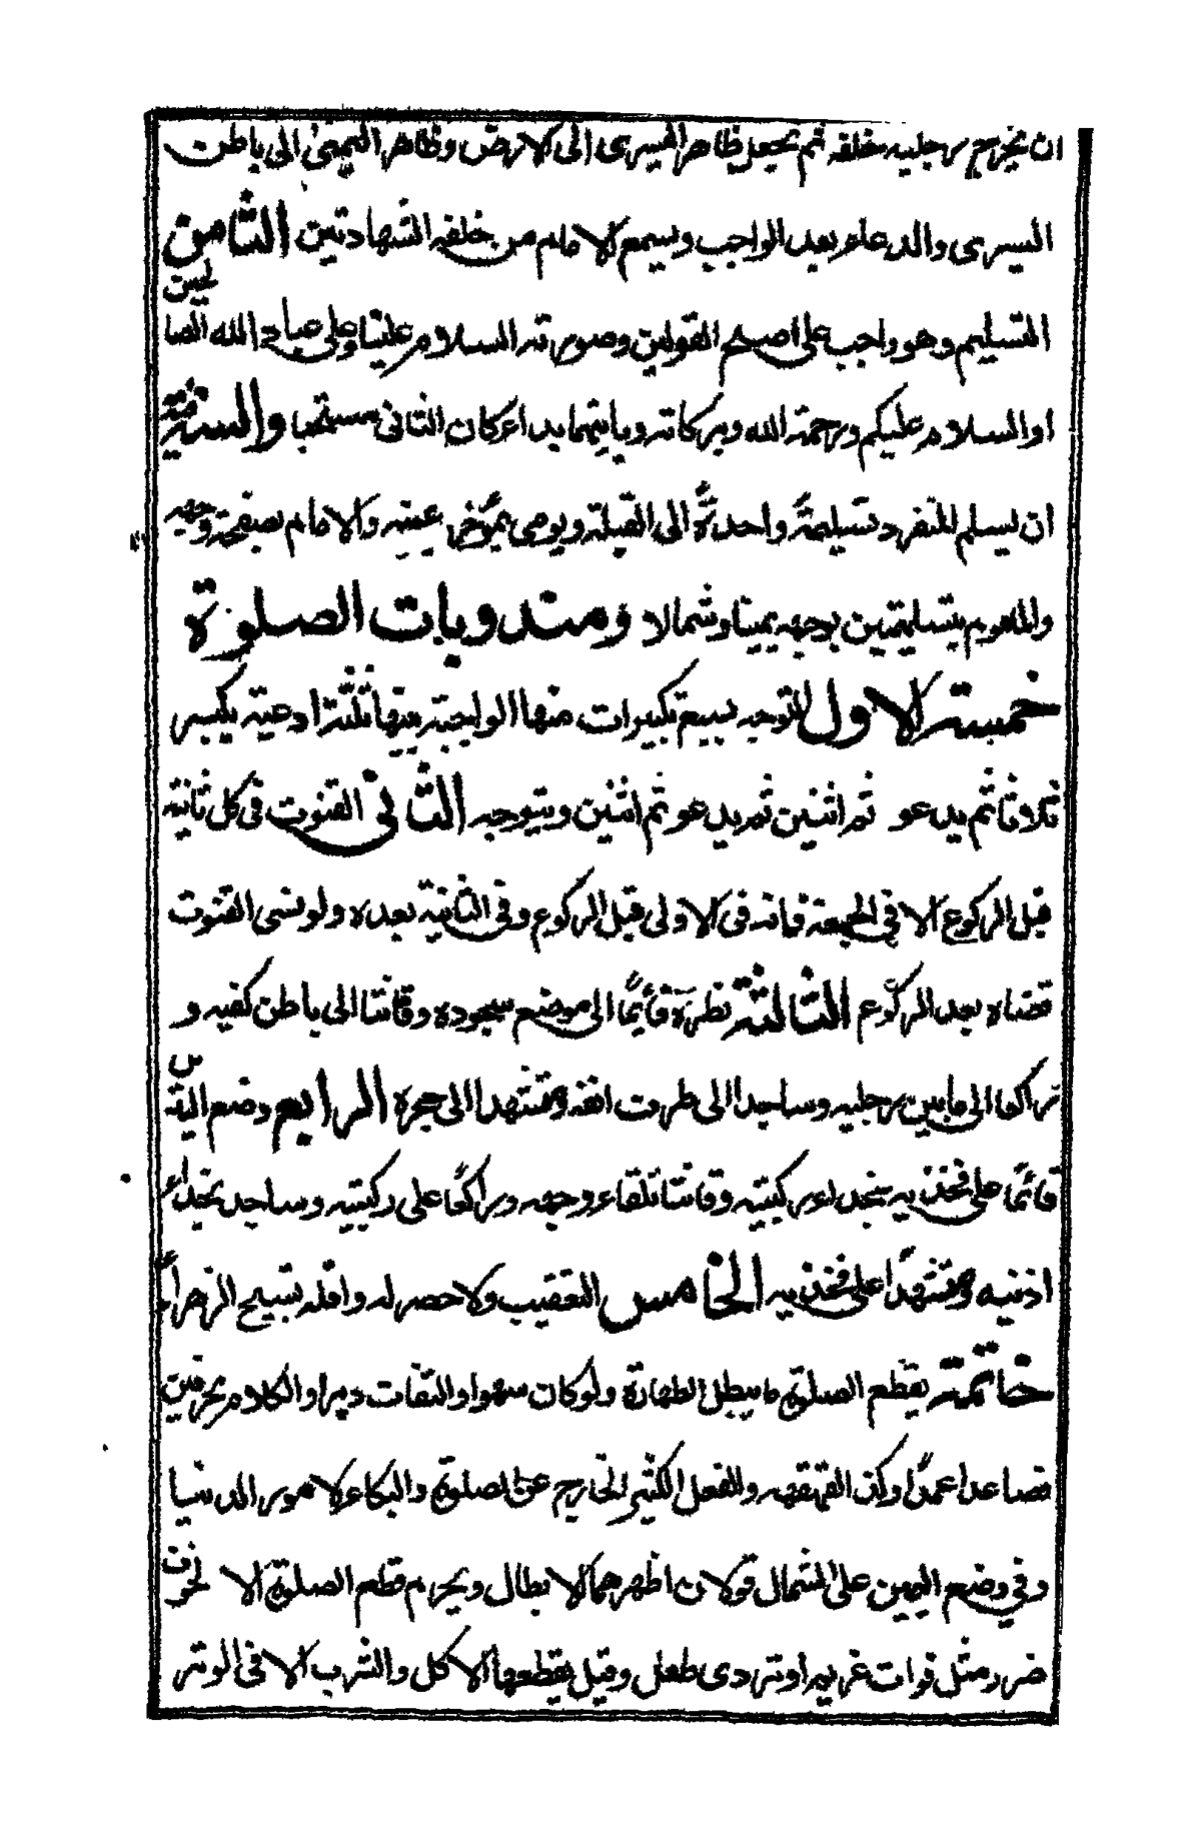 ان يخرج رجليه خلفه ثم يجعل ظاهر اليسرى الى الارض وظاهر اليمنى الى باطن
اليسرى والدعاء بعد الواجب ويسمع الامام من خلفه الشهادتين الثامن
التسليم وهو واجب على اصح القولين وصورته السلام علينا وعلى عباد الله الصالحين
او السلام عليكم ورحمة الله وبركاته وبايتهما بداء كان الثانى مستحبا والسنة فيه
ان يسلم المنفرد تسليمةً واحدةً الى القبلة ويومى بمؤخر عينيه والامام بصفحة وجهه
والماموم بتسليمتين بوجهه يمينا وشمالا ومندوبات الصلوة
خمسة الاول التوجه بسبع تكبيرات منها الواجبة بينها ثلثة ادعية يكبر
ثلاثا ثم يدعو ثم اثنين ثم يدعو ثم اثنين ويتوجه الثانى القنوت فى كل ثانية
قبل الركوع الا فى الجمعة فانه فى الاولى قبل الركوع وفى الثانية بعده ولو نسى القنوت
قضاه بعد الركوع الثالثة نظره قائمًا الى موضع سجوده وقانتا الى باطن كفيه و
راكعا الى ما بين رجليه وساجدا الى طرف انفه ومتشهدا الى حجره الرابع وضع اليدين
قائمًا على فخذيه بحذاء ركبتيه وقانتا تلقاء وجهه وراكعًا على ركبتيه وساجدا بحذاء
اذنيه ومتشهدًا على فخذيه الخامس التعقيب ولا حصر له وافله تسبيح الزهراء
خاتمة يقطع الصلوة ما يبطل الطهارة ولو كان سهوا والتفات دبرا والكلام بحرفين
فصاعدا عمدًا وكذا القهقهه والفعل الكثير الخارج عن الصلوة والبكاء لامور الدنيا
وفي وضع اليمين على الشمال قولان اظهرهما الابطال ويحرم قطع الصلوة الا لخوف
ضرر مثل فوات غريم او تردى طفل وقيل يقطعها الاكل والشرب الا فى الوتر